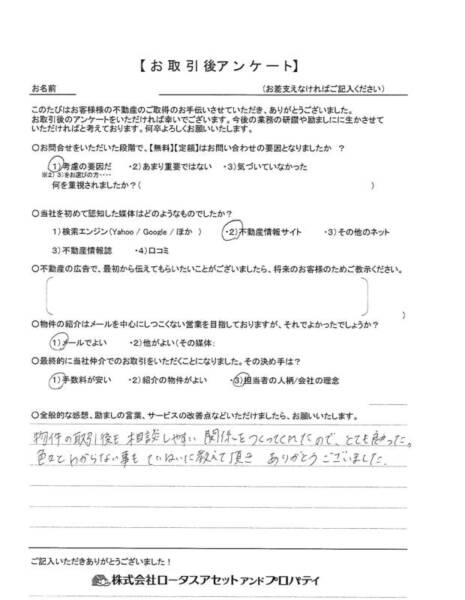 【お取引後アンケート】
お名前 (お差支えなければご記入ください)
このたびはお客様様の不動産のご取得のお手伝いさせていただき、ありがとうございました。
お取引後のアンケートをいただければ幸いでございます。今後の業務の研鑽や励ましにに生かさせて
いただければと考えております。何卒よろしくお願いいたします。
○お問合せをいただいた段階で、【無料】【定額】はお問い合わせの要因となりましたか ?
1)考慮の要因だ ・2)あまり重要ではない ・3)気づいていなかった
※2) 3)をお選びの方‥‥
何を重視されましたか?( )
○当社を初めて認知した媒体はどのようなものでしたか?
1)検索エンジン(Yahoo / Google / ほか ) ・2)不動産情報サイト ・3)その他のネット
3)不動産情報誌 ・4)口コミ
○不動産の広告で、最初から伝えてもらいたいことがございましたら、将来のお客様のためご教示ください。
( )
○物件の紹介はメールを中心にしつこくない営業を目指しておりますが、それでよかったでしょうか?
1)メールでよい ・2)他がよい(その媒体:
○最終的に当社仲介でのお取引をいただくことになりました。その決め手は?
1)手数料が安い ・2)紹介の物件がよい ・3)担当者の人柄/会社の理念
○全般的な感想、励ましの言葉、サービスの改善点などいただけましたら、お願いします。
物件の取引後も相談しやすい関係をつくってくれたので、とても助かった。
色々とわからない事もていねいに教えて頂き ありがとうございました。
ご記入いただきありがとうございました!
株式会社ロータスアセットアンドプロパティ